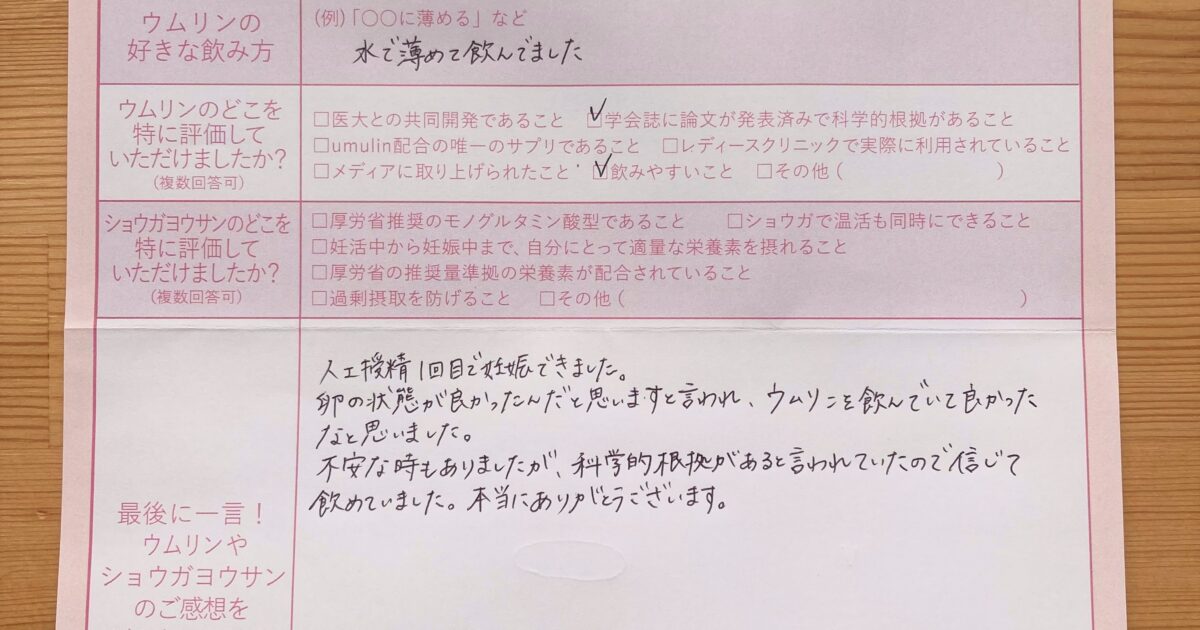 ウムリンの
好きな飲み方
(例)「〇〇に薄める」など
水で薄めて飲んでました
ウムリンのどこを
特に評価して
いただけましたか?
(複数回答可)
□医大との共同開発であること ☑学会誌に論文が発表済みで科学的根拠があること
□umulin配合の唯一のサプリであること □レディースクリニックで実際に利用されていること
□メディアに取り上げられたこと ☑飲みやすいこと □その他 ( )
ショウガヨウサンのどこを
特に評価して
いただけましたか?
(複数回答可)
□厚労省推奨のモノグルタミン酸型であること □ショウガで温活も同時にできること
□妊活中から妊娠中まで、自分にとって適量な栄養素を摂れること
□厚労省の推奨量準拠の栄養素が配合されていること
□過剰摂取を防げること □その他 ( )
人工授精1回目で妊娠できました。
卵の状態が良かったんだと思いますと言われ、ウムリンを飲んでいて良かった
なと思いました。
不安な時もありましたが、科学的根拠があると言われていたので信じて
飲めていました。本当にありがとうございます。
最後に一言!
ウムリンや
ショウガヨウサン
のご感想を